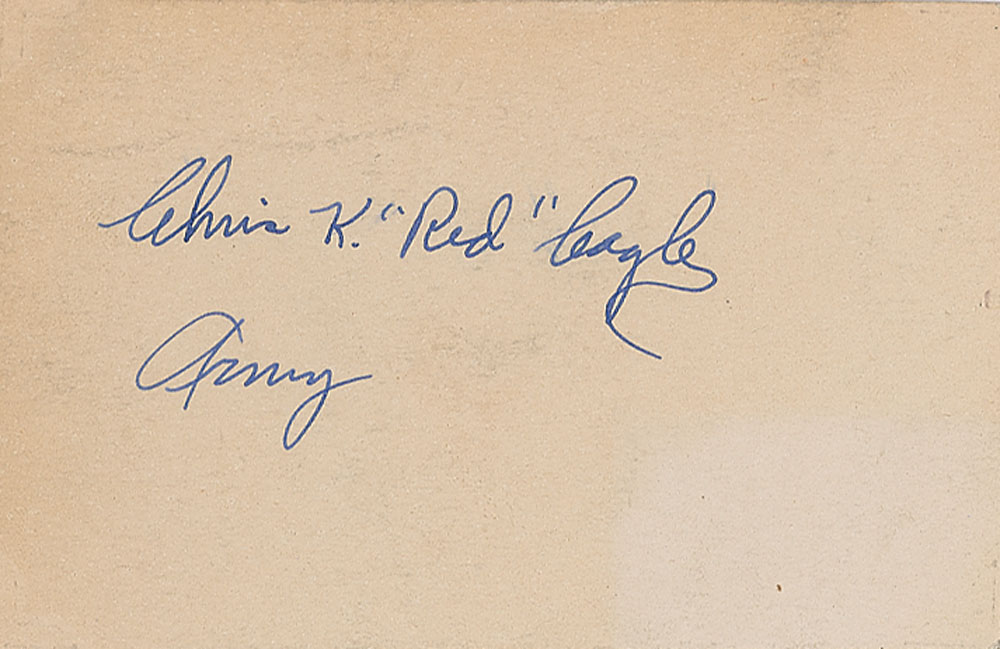 Chris K. "Red" Cagle
Army